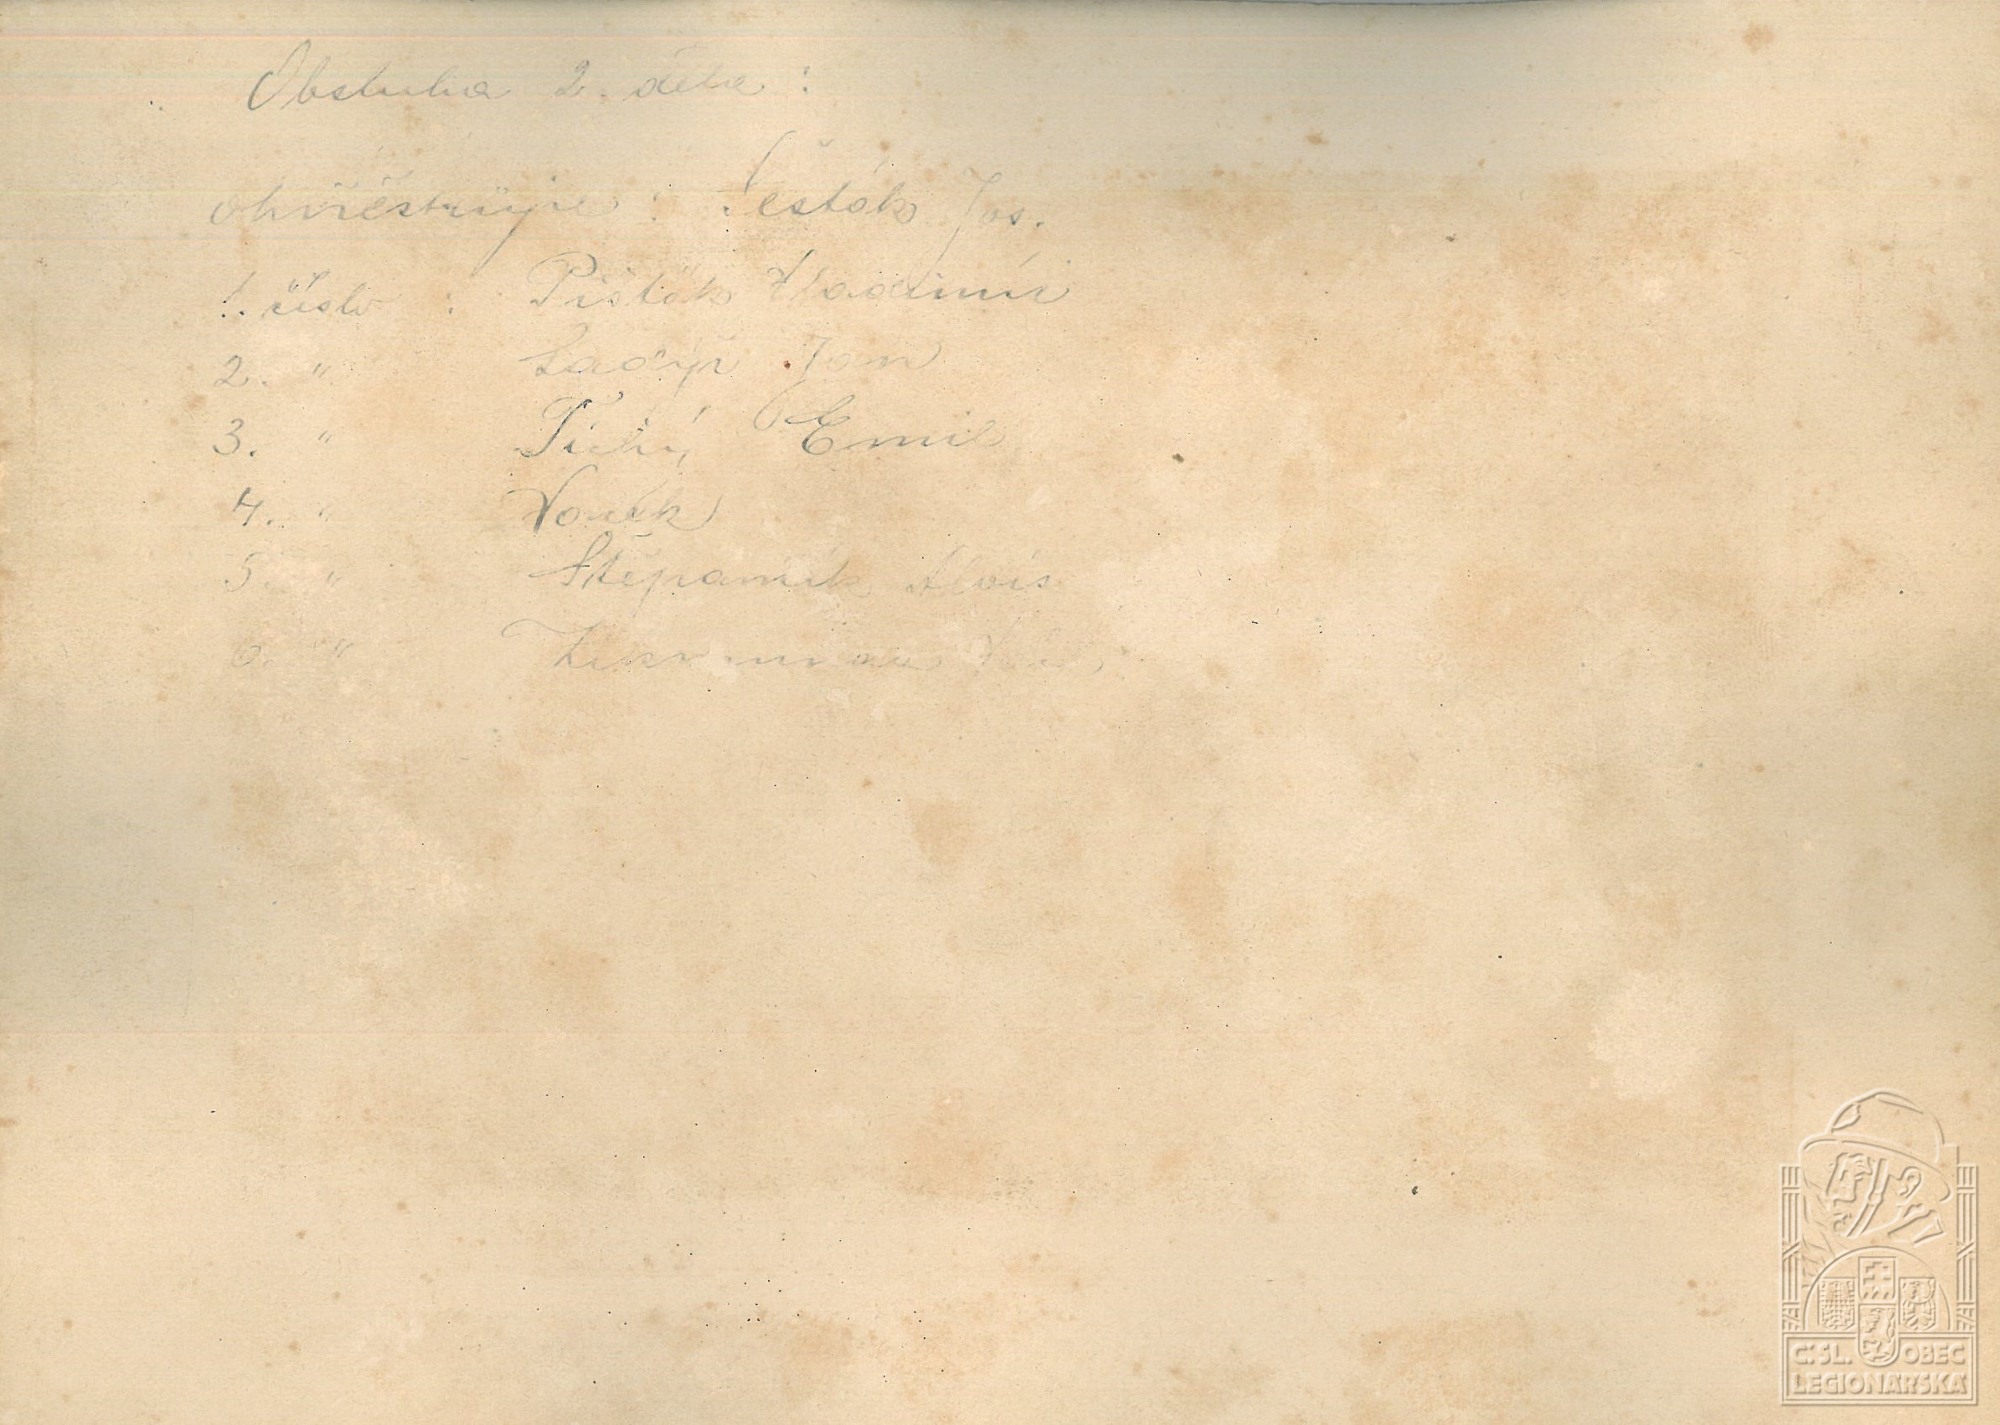 Obsluha 2. děla:
ohňostrůjce: Šesták Jos.
1. číslo : Pišták Vladimír
2. " Ladýř Jan
3. " Tichý Emil
4. "
5. " Štěpaník Alois
6. "
Č.SL. OBEC
LEGIONÁŘSKÁ